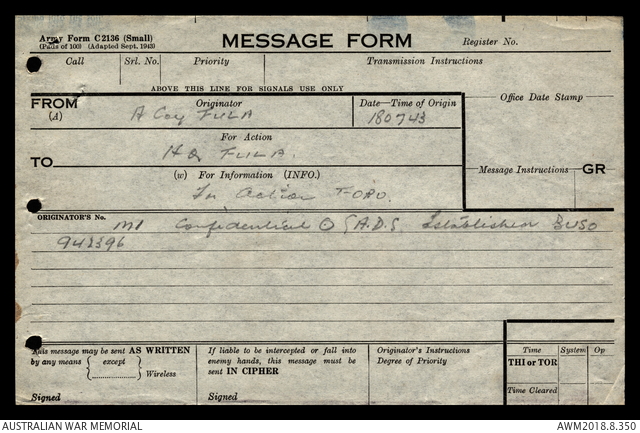 Army Form C2136 (Small)
(Pads of 100) (Adapted Sept. 1943)
MESSAGE FORM
Register No.
Call Srl. No. Priority Transmission Instructions
ABOVE THIS LINE FOR SIGNALS USE ONLY
FROM (A)
Originator
A Coy FULA
Date—Time of Origin
180743
Office Date Stamp
For Action
TO
HQ FULA
(w) For Information (INFO.)
In Action TORO.
Message Instructions GR
ORIGINATOR'S No. M1 Confidential O A.D.S Established BUSO
943396
This message may be sent AS WRITTEN
by any means { except
Wireless
Signed
If liable to be intercepted or fall into
enemy hands, this message must be
sent IN CIPHER
Signed
Originator's Instructions
Degree of Priority
Time System Op
THI or TOR
Time Cleared
AUSTRALIAN WAR MEMORIAL AWM2018.8.350